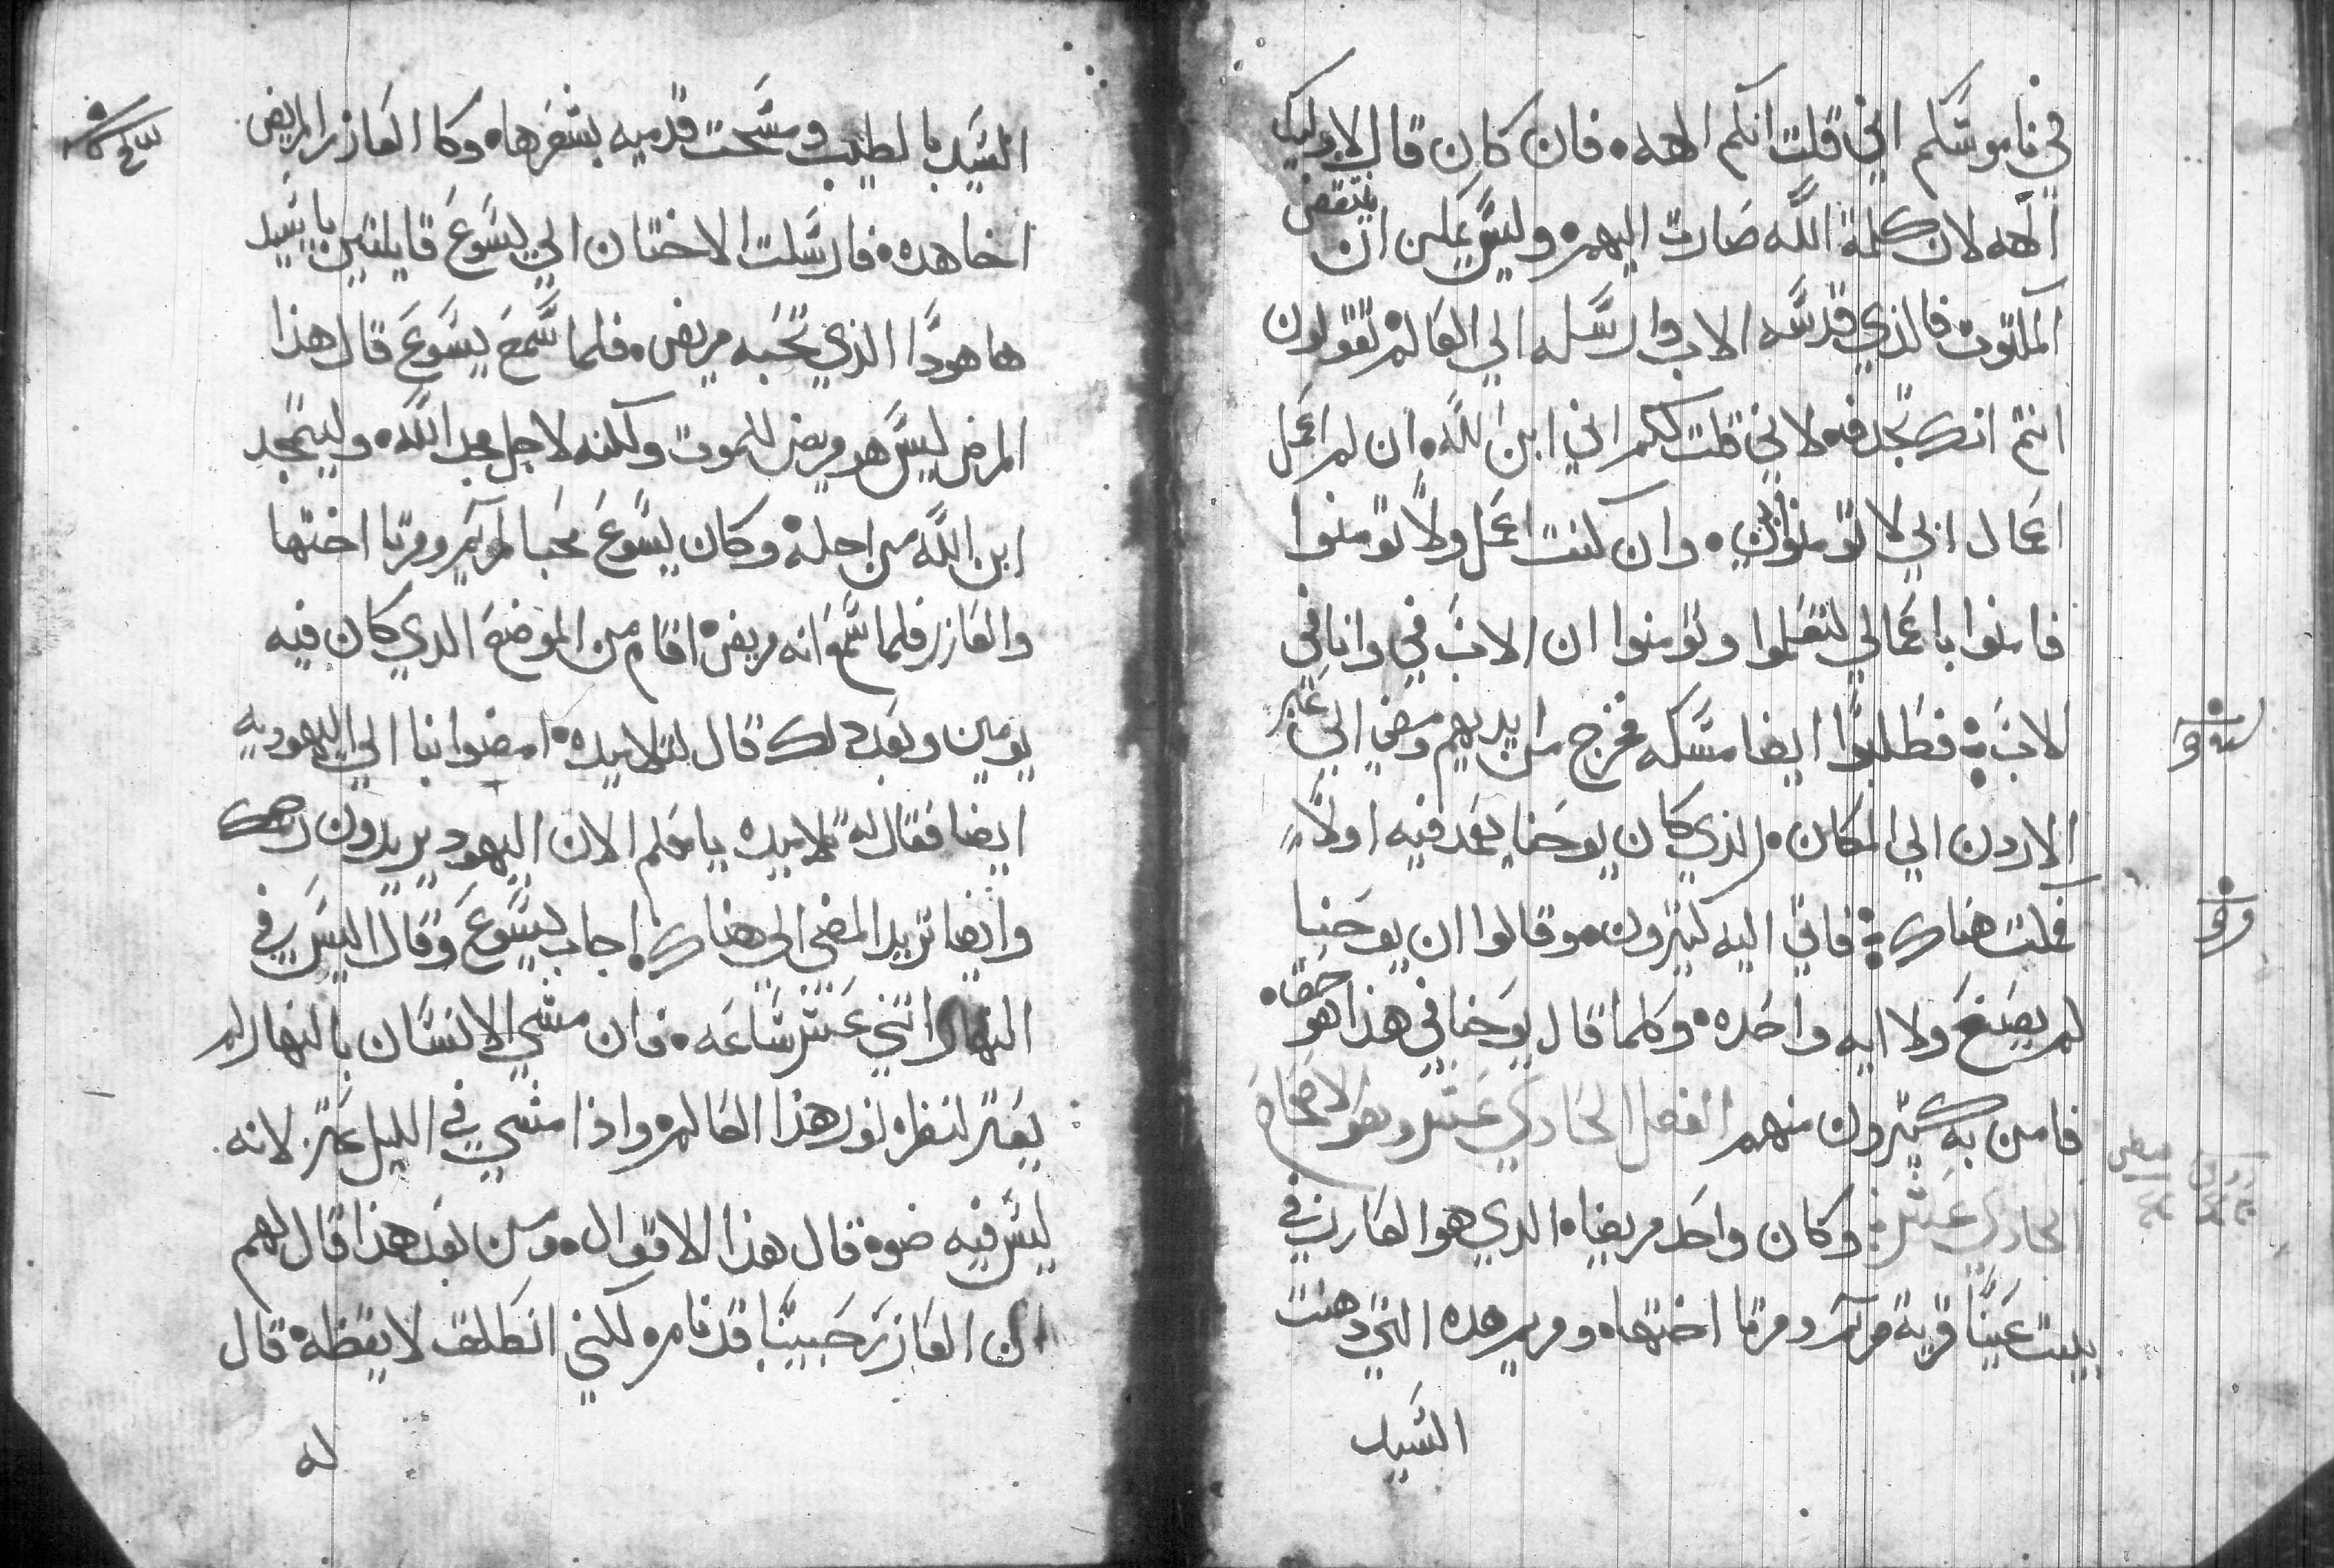 في ناموسكم اني قلت انكم الهه۰ فان كان قال لاوليك
الهه لان كلمة الله صارت اليهم۰ وليس يمكن ان ينتقض
المكتوب فالذي قدسه الاب وارسله الي العالم۰ تقولون
انتم انك تجدف۰ لاني قلت لكم اني ابن الله۰ ان لم اعمل
اعمال ابي لا تؤمنوا بي۰ وان كنت اعمل ولا تؤمنوا
فامنوا باعمالي لتعلموا وتؤمنوا ان الاب في وانا في
الاب فطلبوا ايضا مسكه فخرج من ايديهم ومضي الي عبر
الاردن الي المكان۰ الذي كان يوحنا يعمد فيه اولا
فمكث هناك فاتي اليه كثيرون۰ وقالوا ان يوحنا
لم يصنع ولا ايه واحده۰ وكلما قال يوحنا في هذا هو حق۰
فامن به كثيرون منهم الفصل الحادي عشر وهو الاصحاح
الحادي عشر وكان واحد مريضا۰ الدي هو العازر۰ في
بيت عنيا قرية مريم ومرتا اختها۰ ومريم هده التي دهنت
السيد
السيد بالطيب ومسحت قدميه بشعرها۰ وكا العازر المريض
اخا هده۰ فارسلت الاختان الي يسوع قايلتين يا سيد
ها هودا الذي تحبه مريض۰ فلما سمع يسوع قال هذا
المرض ليس هو مريض للموت ولكنه لاجل مجد الله۰ وليتمجد
ابن الله من اجله۰ وكان يسوع محبا لمريم ومرتا اختها
والعازر فلما سمع انه مريض۰ اقام من الموضع الدي كان فيه
يومين وبعد دلك قال لتلاميده۰ امضوا بنا الي اليهوديه
ايضا فقال له تلاميده يا معلم الان اليهود يريدون رجمك
وايضا تريد المضي الي هناك۰ اجاب يسوع وقال اليس في
النهار اثني عشر ساعه۰ فان مشي الانسان بالنهار لم
يعثر لنظره نور هذا العالم۰ واذا مشي في الليل عثر۰ لانه
ليس فيه ضوه قال هذا الاقوال۰ ومن بعد هذا قال لهم
ان العازر حبيبنا قد نام۰ لكني انطلق لايقظه۰ قال
له